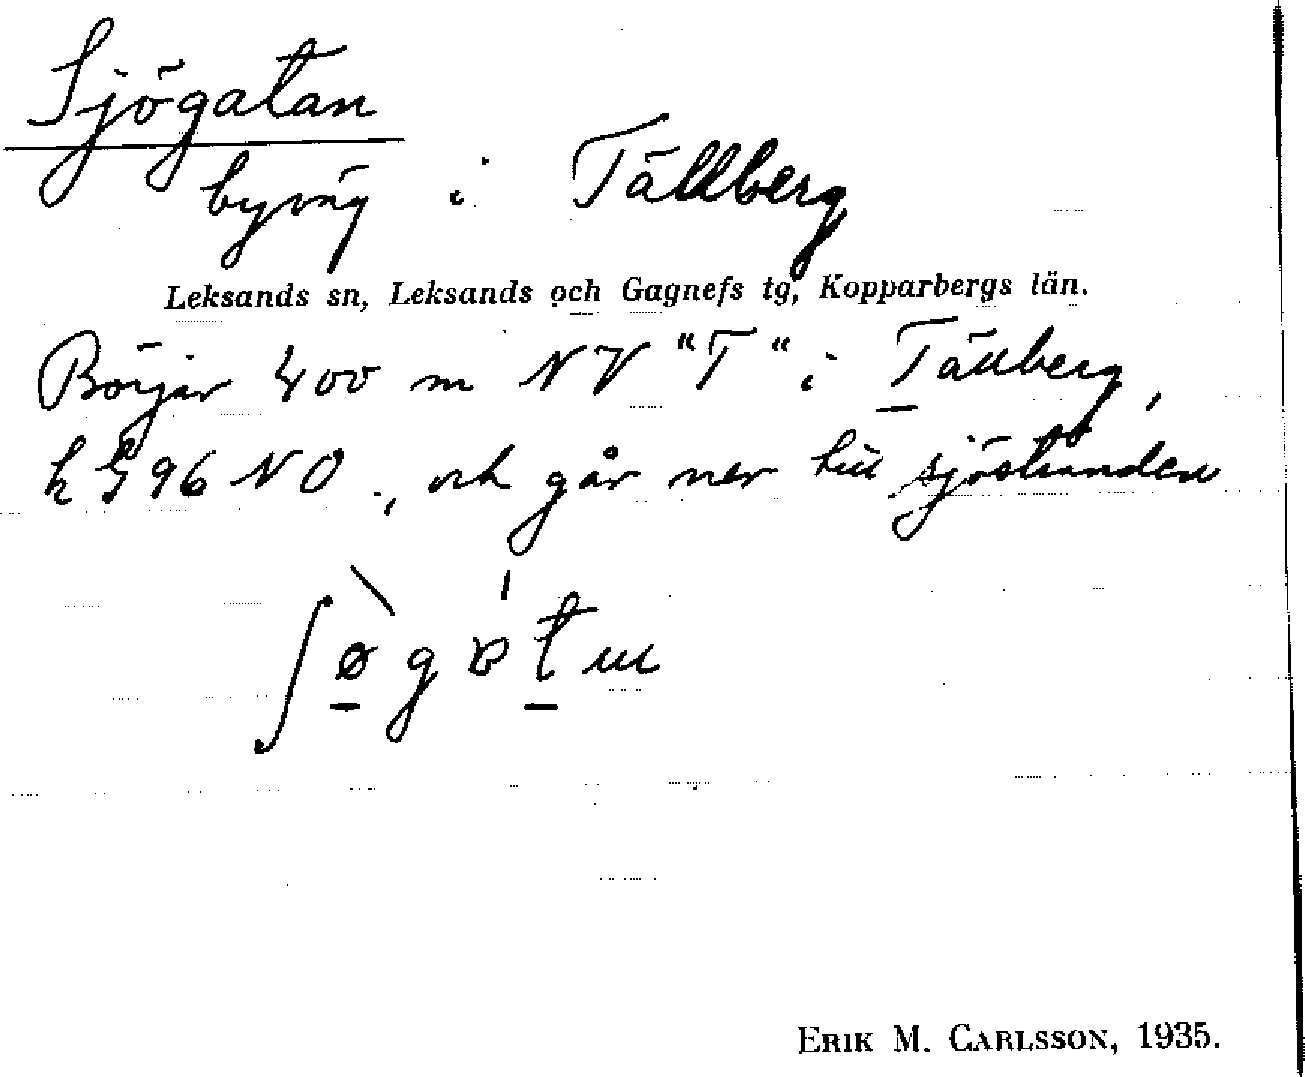 Sjögatan
byväg i Tällberg
Leksands sn, Leksands och Gagnefs tg, Kopparbergs län.
Börjar 400 m NV "T" i Tällberg,
k G 96 NO., och går ner till sjöstranden
Erik M. Carlsson, 1935.